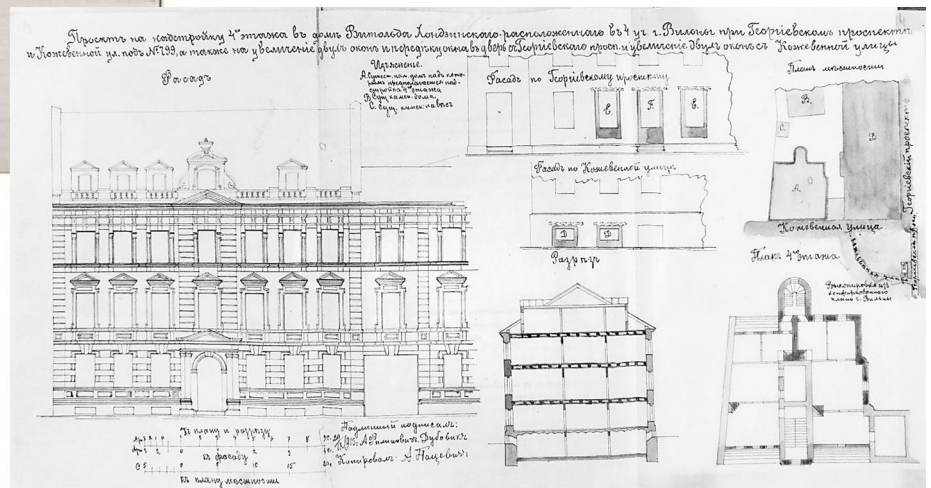 Проектъ на надстройку 4го этажа въ домѣ Витольда Лондзинскаго, расположеннаго въ 4 уч. г. Вильны при Георгіевскомъ проспектѣ
и Кожевенной ул. подъ № 799, а также на увеличеніе двухъ оконъ и передѣлку окна въ дверь съ Георгіевскаго просп. и увеличеніе двухъ оконъ съ Кожевенной улицы
Фасадъ
А. Сущест. кам. домъ надъ кото-
рымъ предполагается над-
стройка 4го этажа
В. Сущ. камен. дома
С. Сущ. камен. навѣсъ
Фасадъ по Георгіевскому проспекту
E.
F.
E.
Фасадъ по Кожевенной улицѣ
D
D
Разрѣзъ
Планъ мѣстности
B.
C.
B
A
Георгіевскій проспектъ
Кожевенная улица
Планъ 4го этажа
плана г. Вильны
Къ плану и разрѣзу
Къ фасаду
Къ плану мѣстности
Подлинный подписалъ:
Дубовикъ
Копировалъ: А. Нацевичъ